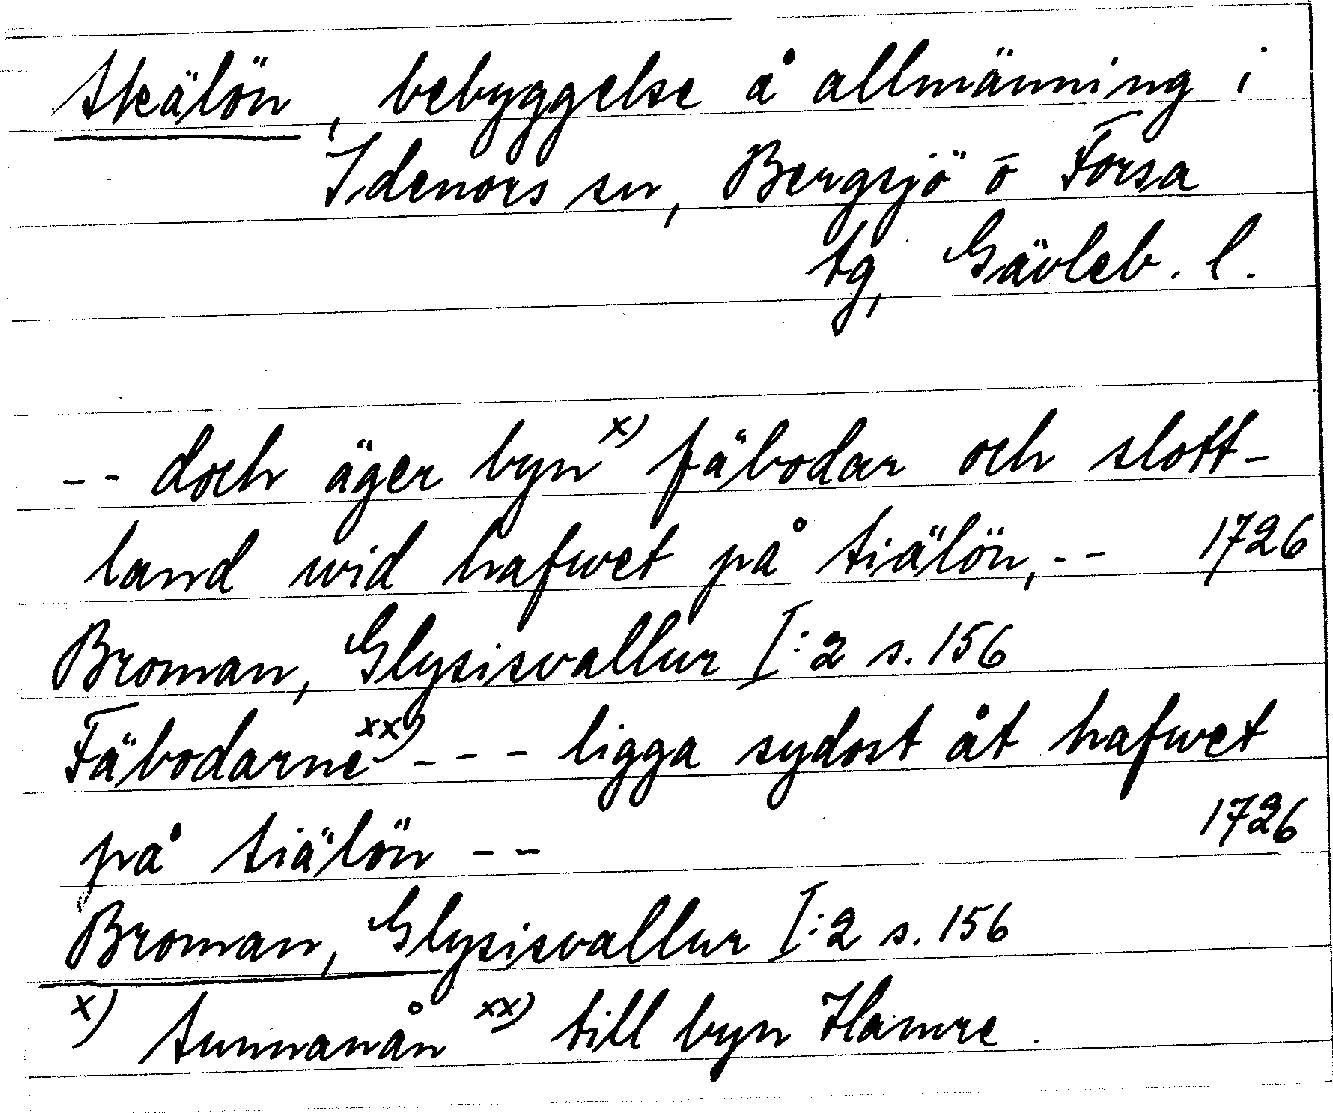 Skälön, bebyggelse å allmänning i
Idenors sn, Bergsjö ō Forsa
tg, Gävleb. l.
-- doch äger byn x) fäbodar och slott-
land wid hafwet på Siälön, -- 1726
Broman, Glysisvallur I:2 s. 156
Fäbodarne xx) --- ligga sydost åt hafwet
på Siälön -- 1726
Broman, Glysisvallur I:2 s. 156
x) Sunnanån xx) till byn Hamre.